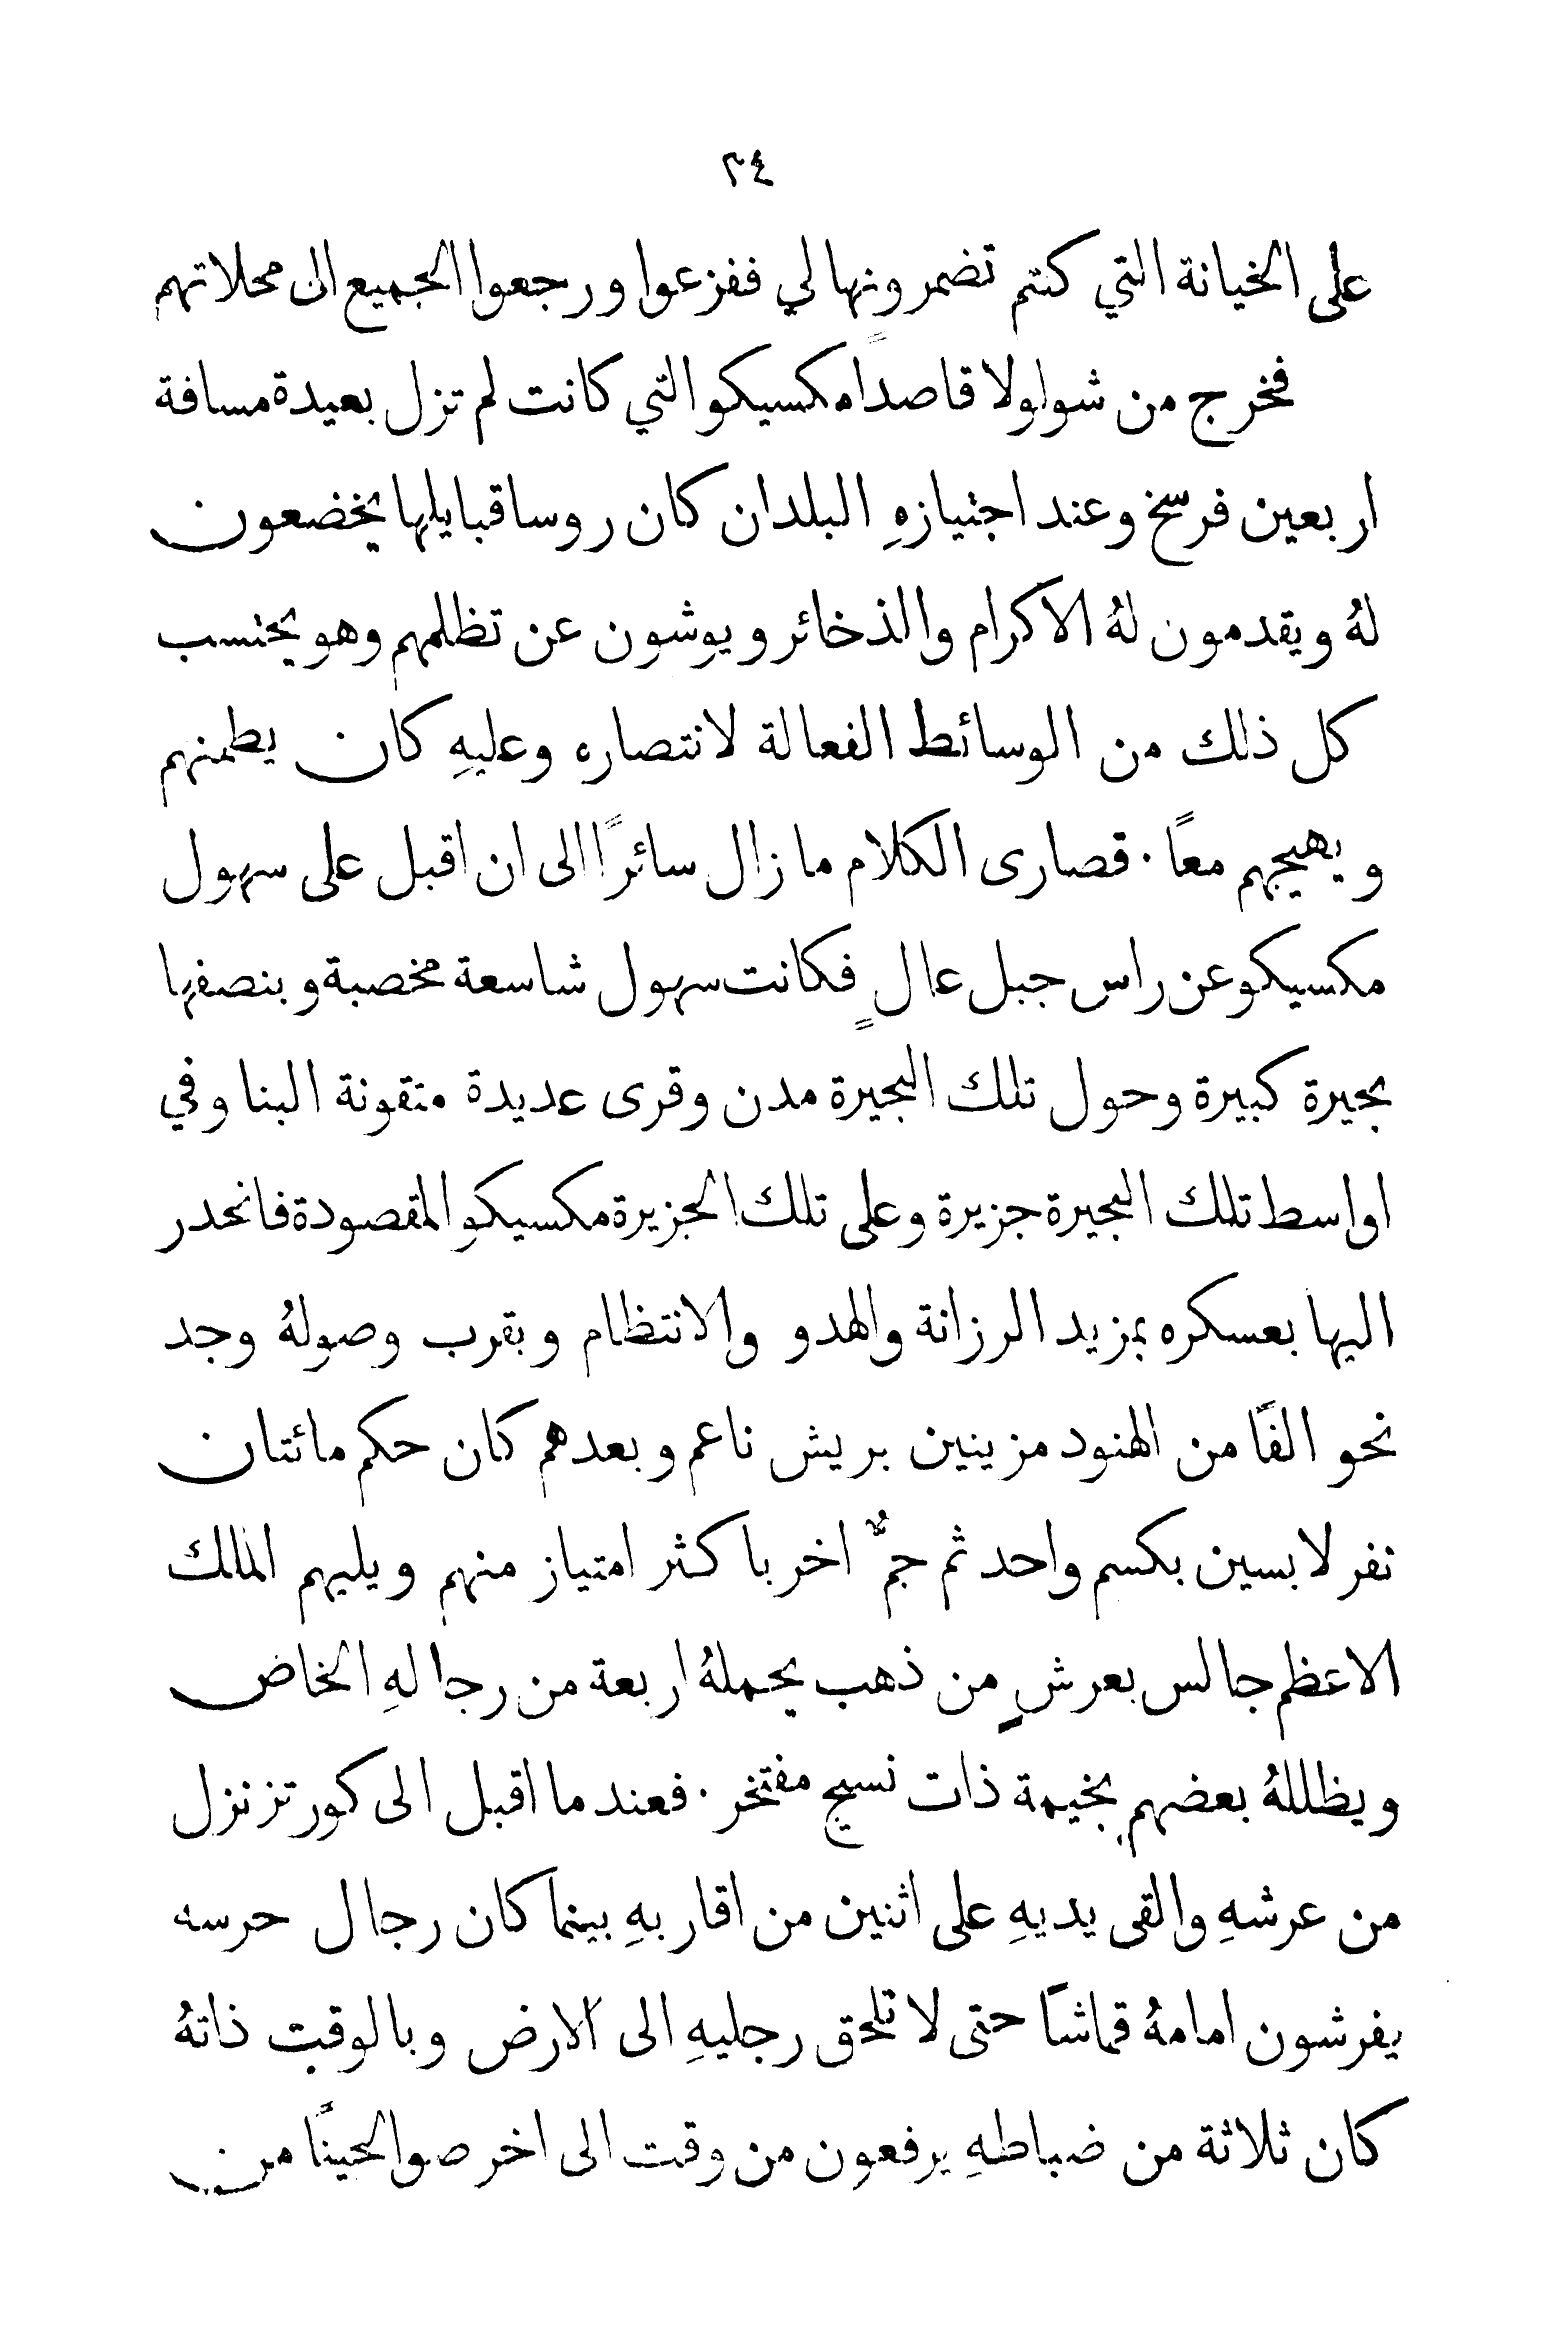 ٣٤
على الخيانة التي كنتم تضمرونها لي ففزعوا ورجعوا الجميع الى محلاتهم
فخرج من شولولا قاصداً مكسيكو التي كانت لم تزل بعيدة مسافة
اربعين فرسخ وعند اجتيازهِ البلدان كان روسا قبايلها يخضعون
لهُ ويقدمون لهُ الاكرام والذخائر ويوشون عن تظلمهم وهو يحتسب
كل ذلك من الوسائط الفعالة لانتصاره وعليهِ كان يطمنهم
ويهيجهم معًا. قصارى الكلام ما زال سائرًا الى ان اقبل على سهول
مكسيكو عن راس جبل عالٍ فكانت سهول شاسعة مخصبة وبنصفها
بحيرة كبيرة وحول تلك البحيرة مدن وقرى عديدة متقونة البنا وفي
اواسط تلك البحيرة جزيرة وعلى تلك الجزيرة مكسيكو المقصودة فانحدر
اليها بعسكره بمزيد الرزانة والهدو والانتظام وبقرب وصولهُ وجد
نحو الفًا من الهنود مزينين بريش ناعم وبعدهم كان حكم مائتان
نفر لابسين بكسم واحد ثم جمٌ اخر باكثر امتياز منهم ويليهم الملك
الاعظم جالس بعرشٍ من ذهب يحملهُ اربعة من رجالهِ الخاض
ويظللهُ بعضهم بخيمة ذات نسيج مفتخر. فعند ما اقبل الى كورتز نزل
من عرشهِ والقى يديهِ على اثنين من اقاربهِ بينما كان رجال حرسه
يفرشون امامهُ قماشًا حتى لا تلحق رجليهِ الى الارض وبالوقت ذاتهُ
كان ثلاثة من ضباطهِ يرفعون من وقت الى اخر صوالحينًا من